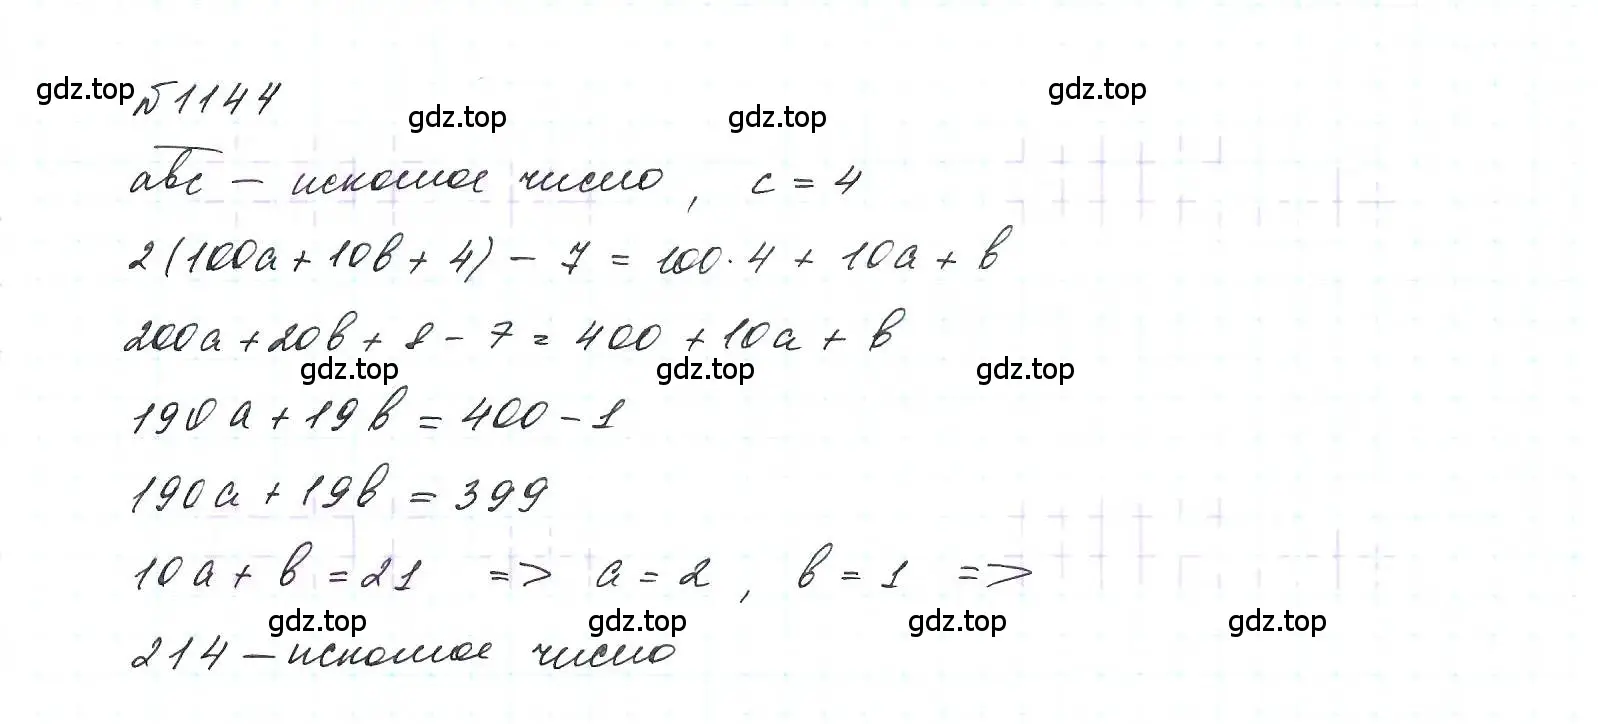 gdz.top №1144 gdz.top
gdz.top gdz.top
abc - искомое число, c = 4
2(100a + 10b + 4) - 7 = 100·4 + 10a + b
200a + 20b + 8 - 7 = 400 + 10a + b
gdz.top gdz.top gdz.top
190a + 19b = 400 - 1
190a + 19b = 399
10a + b = 21 => a = 2, b = 1 =>
gdz.top gdz.top gdz.top gdz.top
214 - искомое число